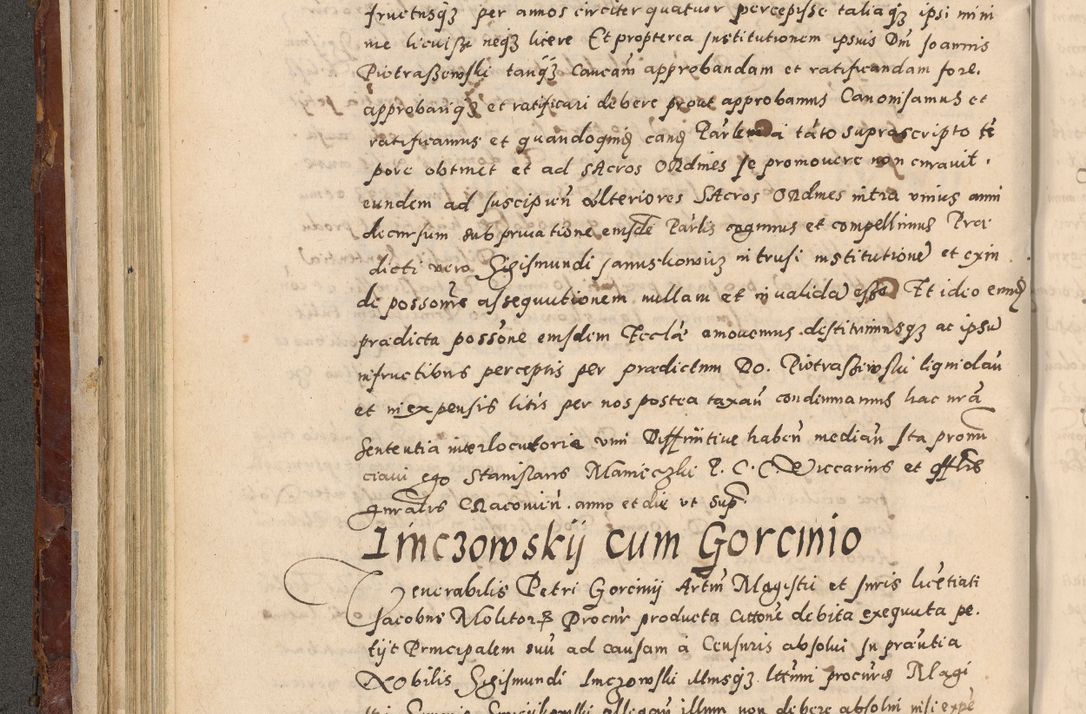 fructusqz per annos circiter quatuor percepisse taliaqz ipsi mini
me licuisse neqz licere Et propterea Institutionem ipsius Dni Joannis
Piotraszewski tanqz Cancam approbandam et ratificandam fore.
approbariqz et ratificari debere prout approbamus Canonisamus et
ratificamus et quandoquid a tato suprascripto te
pore obtinet et ad sAcros ORdines se promovere non curavit.
eundem ad suscipien Ulteriores SAcros ORdines intra unius anni
decursum sub privatione eiusde cogimus et compellimus Præ
dicti vero Sigismundi Januskowicz intrusi institutione et exin
de possonis assequutionem nullam et invalida esse Et ideo
prædicta possone eiusdem Eccla amovemus destituimusqz ac ipsu
infructibus perceptis per prædictum Do. Piotraszewski
et in expensis litis per nos postea taxan condemnamus hac nra
Sententia interlocutoria vim Diffinitive haben median Ita pronu
ciavi ego Stanislaus I. C. C. Viccarius et offlis
gnralis CRacovien. anno et die ut supr
Imczowskij cum Gorcinio
Venerabilis Petri Gorcinij Artiu Magistri et Juris licetiati
Jacobus Molitor Procur producta Cittone debita exequuta pe.
tijt Principalem suu ad causam a Censuris absolui In præntia
NObilis Sigismundi Imczowski Illmusqz procuris Magi
allegan illum non debere absolui nisi expe